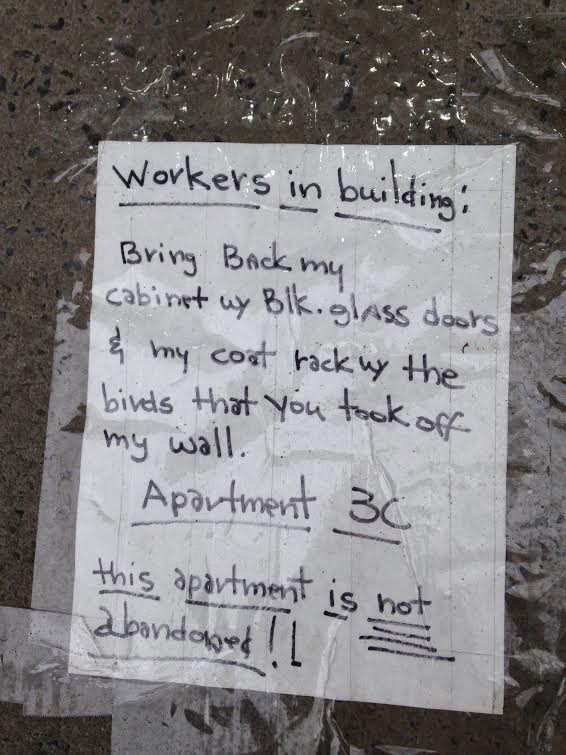 Workers in building:
Bring Back my
cabinet w/ Blk. glass doors
& my coat rack w/ the
birds that you took off
my wall.
Apartment 3C
this apartment is not
abandoned!!